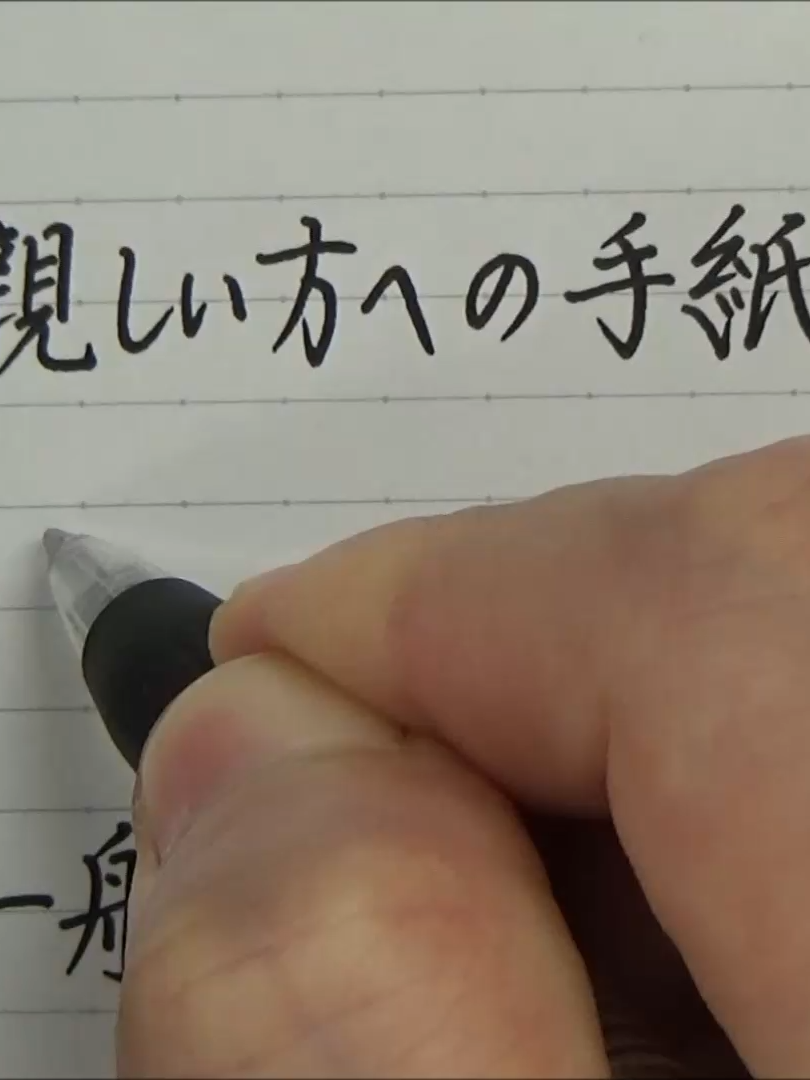 親しい方への手紙
一